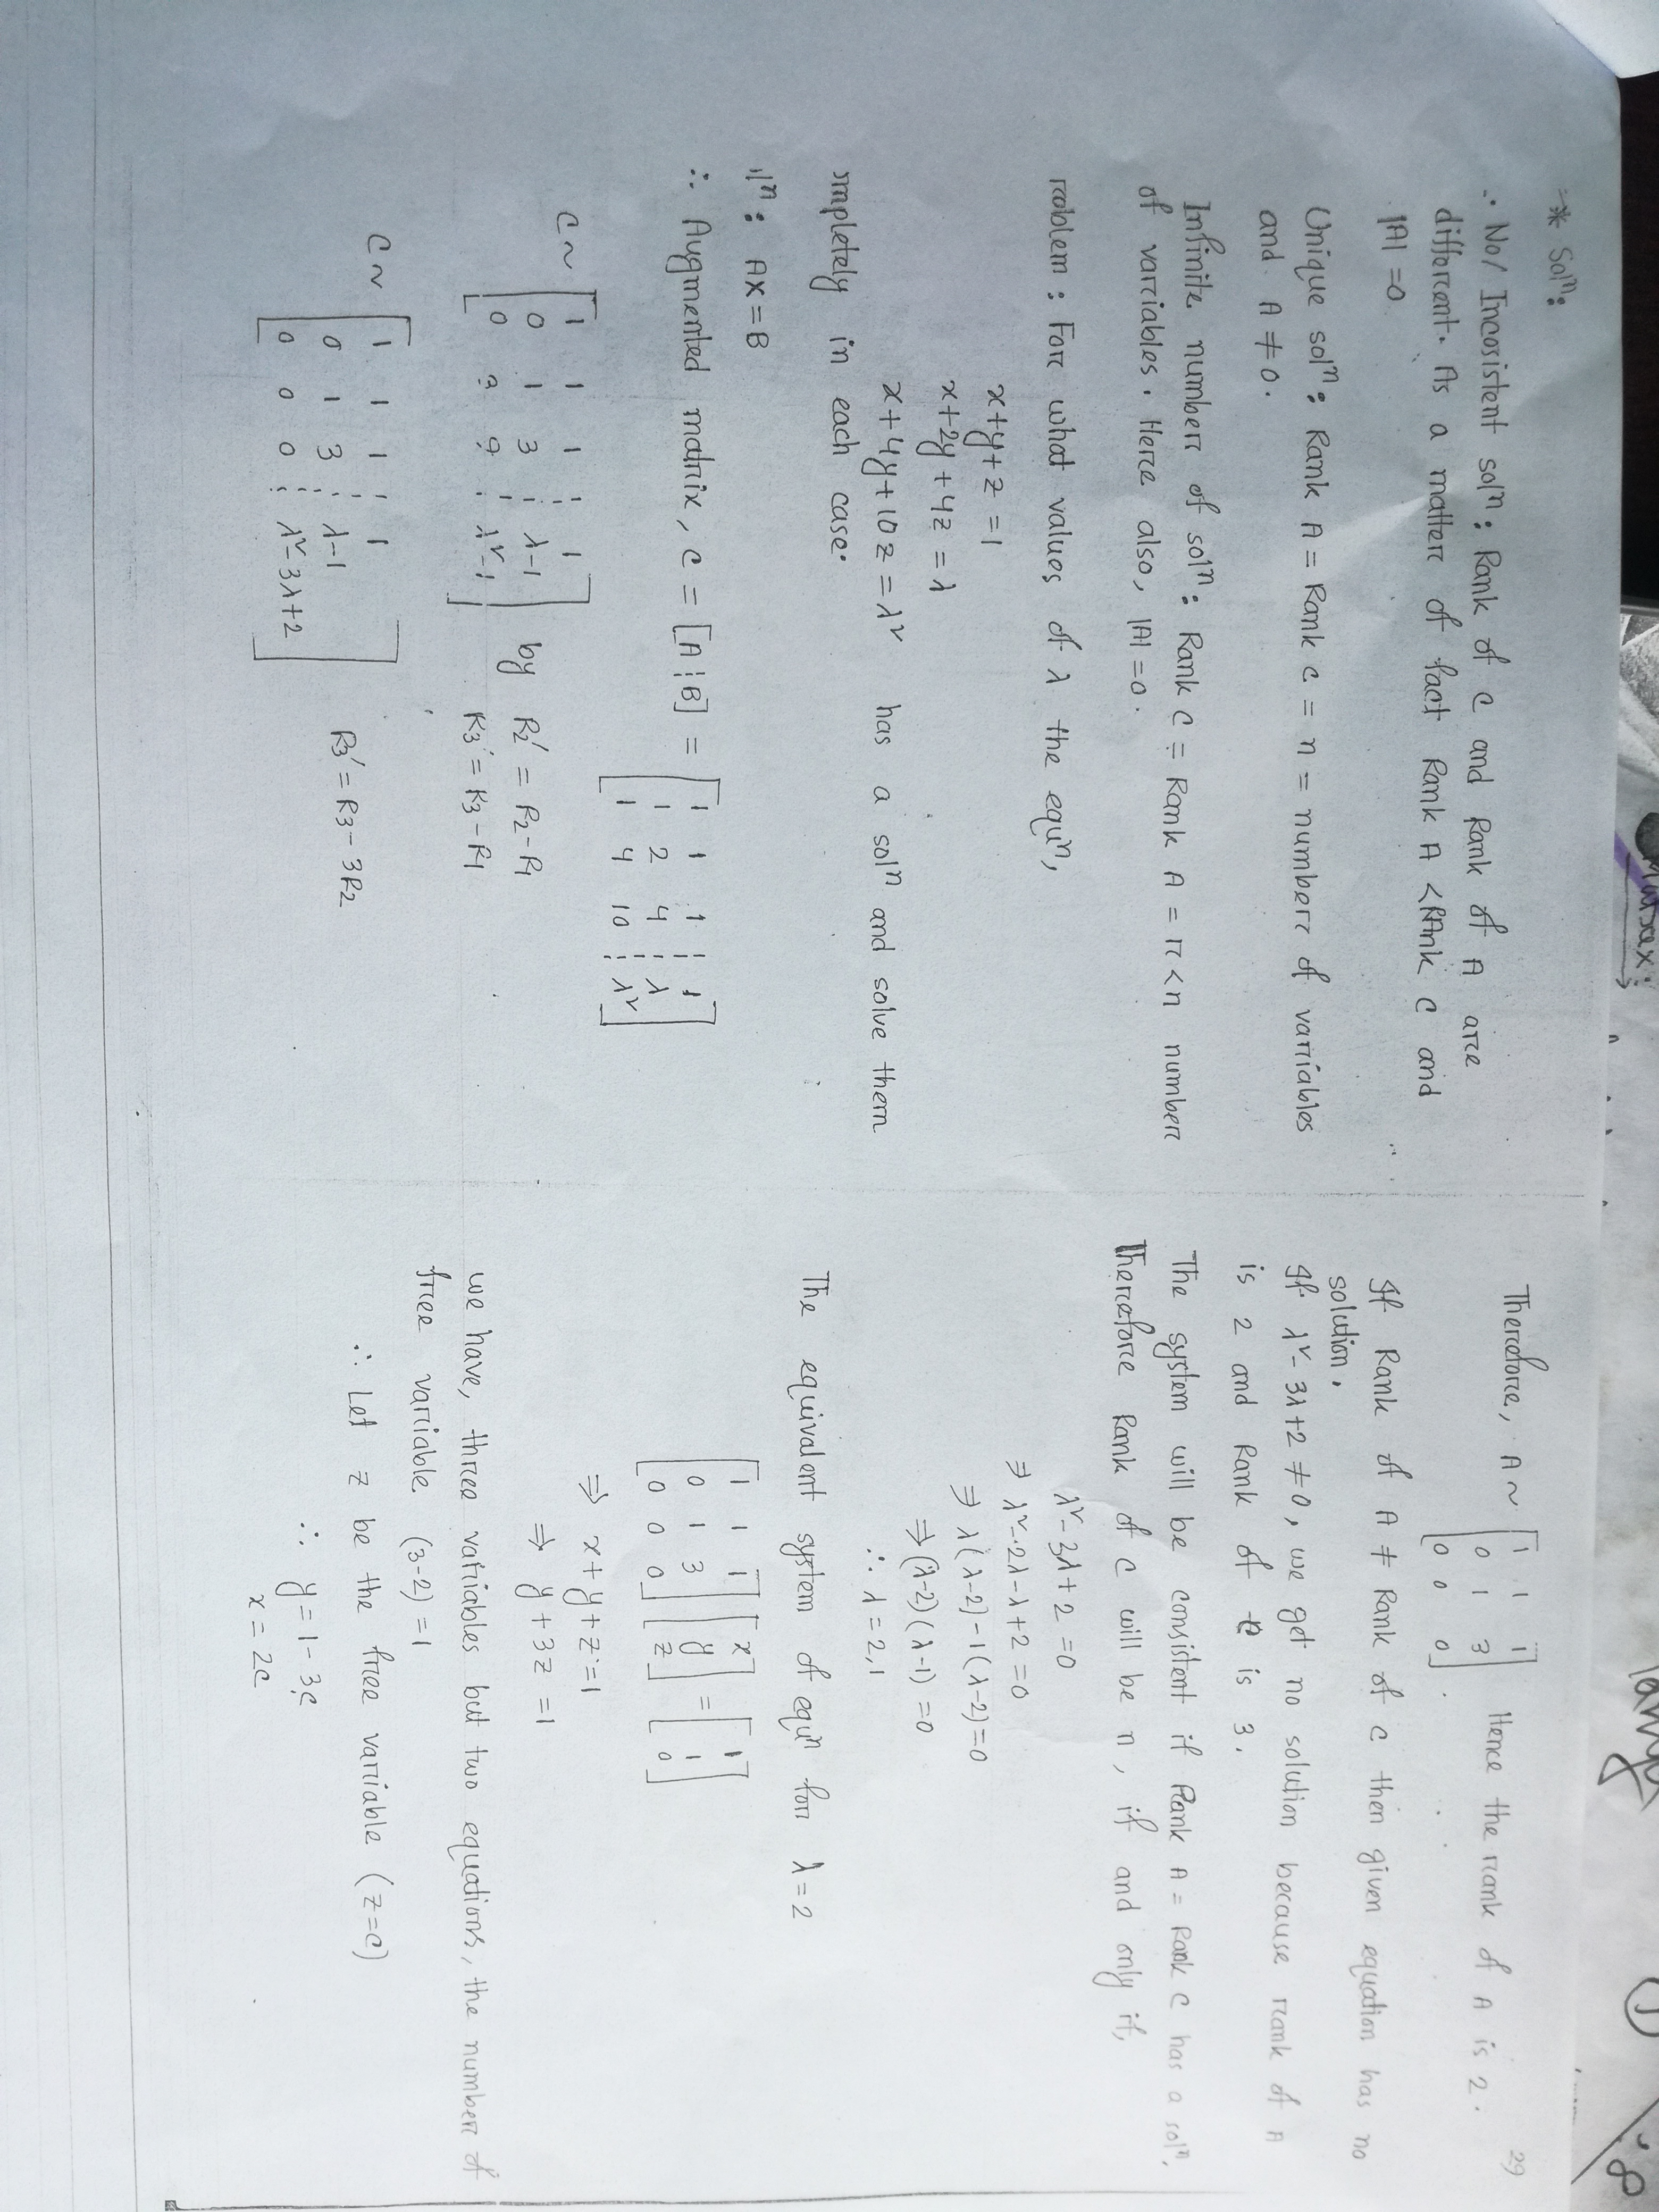 Matrix:
* Solⁿ:
No/ Incosistent solⁿ: Rank of C and Rank of A are
different. As a matter of fact Rank A < RAnk C and
|A| = 0
Unique solⁿ: Rank A = Rank C = n = number of variables
and A ≠ 0.
Infinite number of solⁿ: Rank C = Rank A = r < n number
of variables. Here also, |A| = 0.
roblem: For what values of λ the equⁿ,
x+y+z = 1
x+2y+4z = λ
x+4y+10z = λ² has a solⁿ and solve them
mpletely in each case.
lⁿ: AX = B
∴ Augmented matrix, C = [A ¦ B] = [1 1 1 ¦ 1
1 2 4 ¦ λ
1 4 10 ¦ λ²]
C ~ [1 1 1 ¦ 1
0 1 3 ¦ λ-1
0 3 9 ¦ λ²-1] by R2' = R2-R1
R3' = R3-R1
C ~ [1 1 1 ¦ 1
0 1 3 ¦ λ-1
0 0 0 ¦ λ²-3λ+2] R3' = R3-3R2
29
Therefore, A ~ [1 1 1
0 1 3
0 0 0]. Hence the rank of A is 2.
If Rank of A ≠ Rank of C then given equation has no
solution.
If λ²-3λ+2 ≠ 0, we get no solution because rank of A
is 2 and Rank of C is 3.
The system will be consistent if Rank A = Rank C has a solⁿ.
Therefore Rank of C will be n, if and only if,
λ²-3λ+2 = 0
⇒ λ²-2λ-λ+2 = 0
⇒ λ(λ-2)-1(λ-2) = 0
⇒ (λ-2)(λ-1) = 0
∴ λ = 2,1
The equivalent system of equⁿ for λ = 2
[1 1 1] [x] = [1]
[0 1 3] [y] [1]
[0 0 0] [z] [0]
⇒ x+y+z = 1
⇒ y+3z = 1
we have, three variables but two equations, the number of
free variable (3-2) = 1
∴ Let z be the free variable (z=c)
∴ y = 1-3c
x = 2c